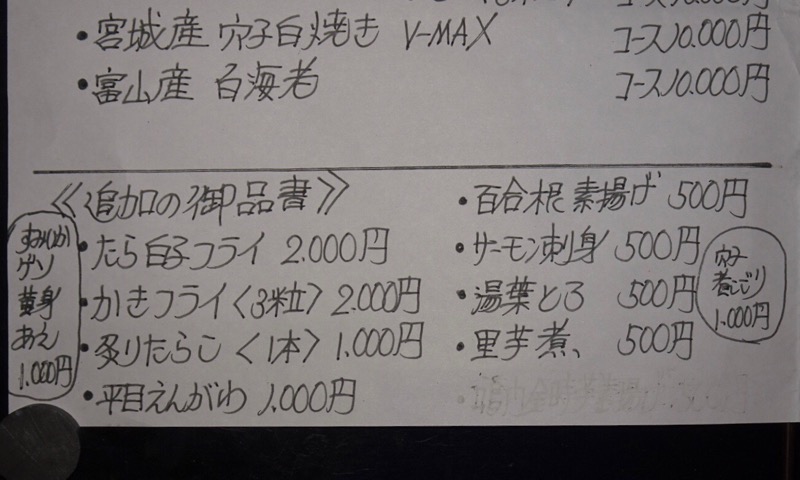 ・宮城産 穴子白焼き V-MAX コース10.000円
・富山産 白海老 コース10.000円
《追加の御品書》
・たら白子フライ 2.000円
・かきフライ〈3粒〉 2.000円
・炙りたらこ〈1本〉 1.000円
・平目えんがわ 1.000円
すみいか
ゲソ
黄身
あえ
1.000円
・百合根 素揚げ 500円
・サーモン刺身 500円
・湯葉とろ 500円
・里芋煮、 500円
穴子
煮こごり
1.000円